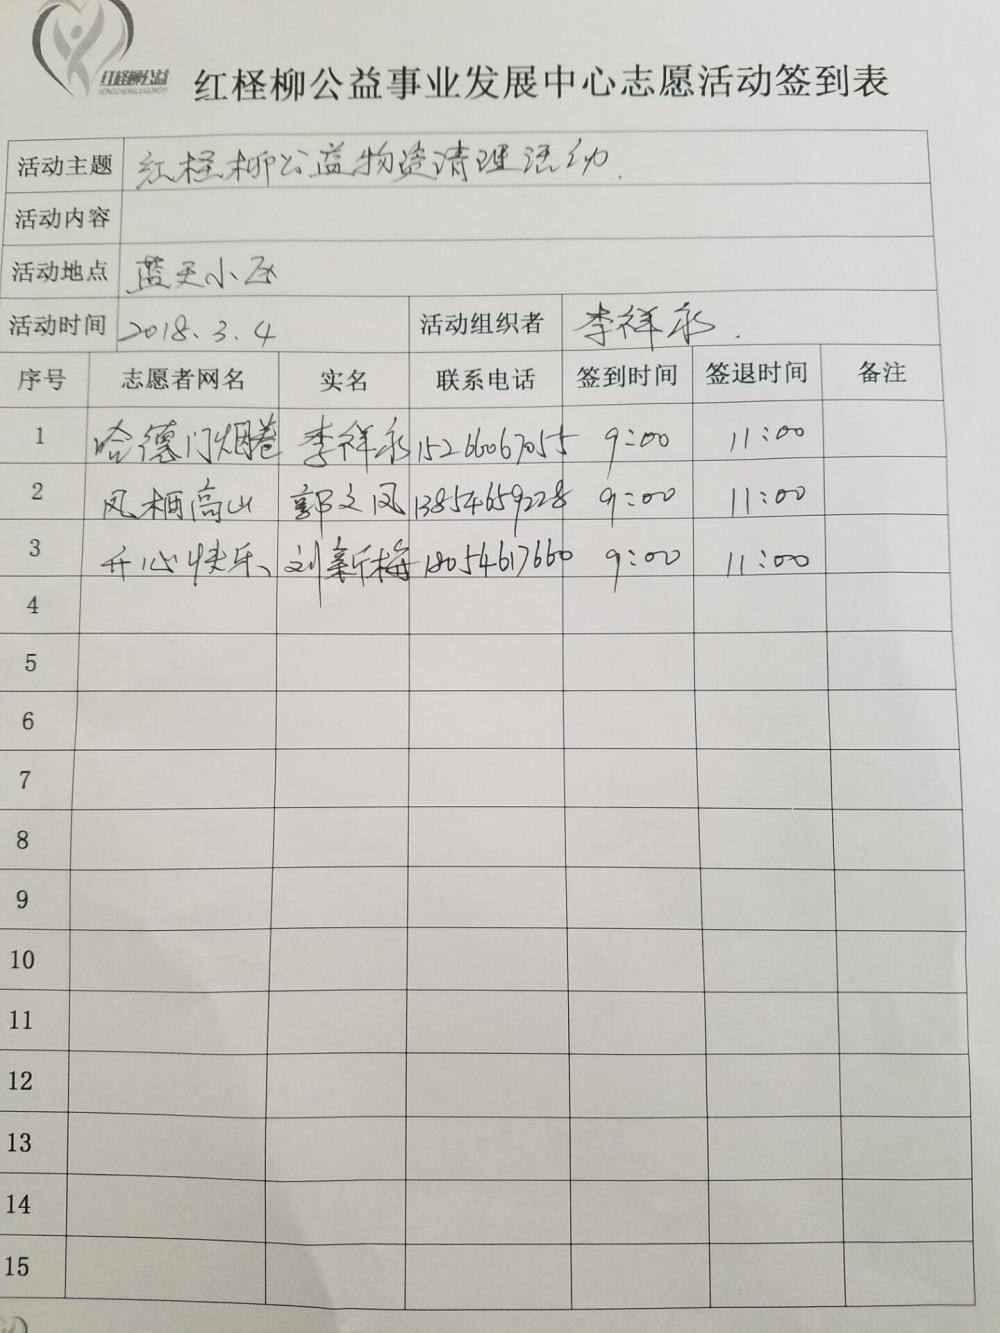 红柽柳公益
HONGCHENGLIUGONGYI
红柽柳公益事业发展中心志愿活动签到表
活动主题 红柽柳公益物资清理活动.
活动内容
活动地点 蓝天小区
活动时间 2018.3.4 活动组织者 李祥永.
序号 志愿者网名 实名 联系电话 签到时间 签退时间 备注
1 哈德门烟卷 李祥永 15266067055 9:00 11:00
2 凤栖高山 郭文凤 13854659228 9:00 11:00
3 开心快乐、 刘新梅 18054617660 9:00 11:00
4
5
6
7
8
9
10
11
12
13
14
15